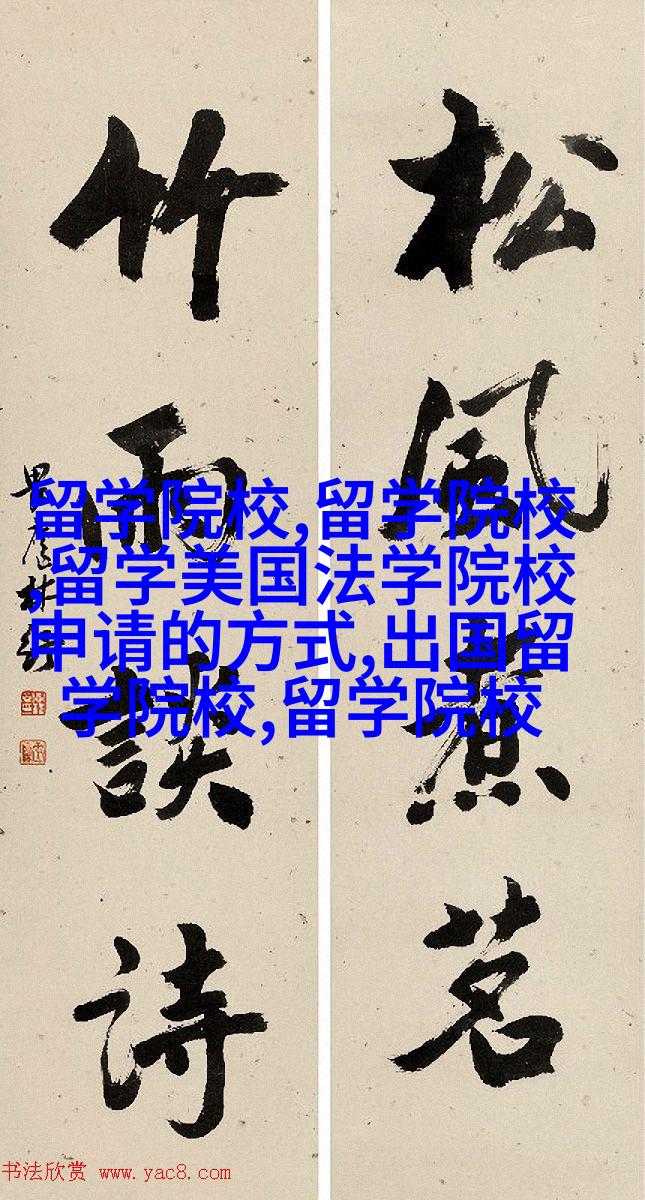 松風煮茗
竹雨談詩
畏廬林紓
留学院校,留学院校
,留学美国法学院校
申请的方式,出国留
学院校,留学院校
书法欣赏 www.yac8.com